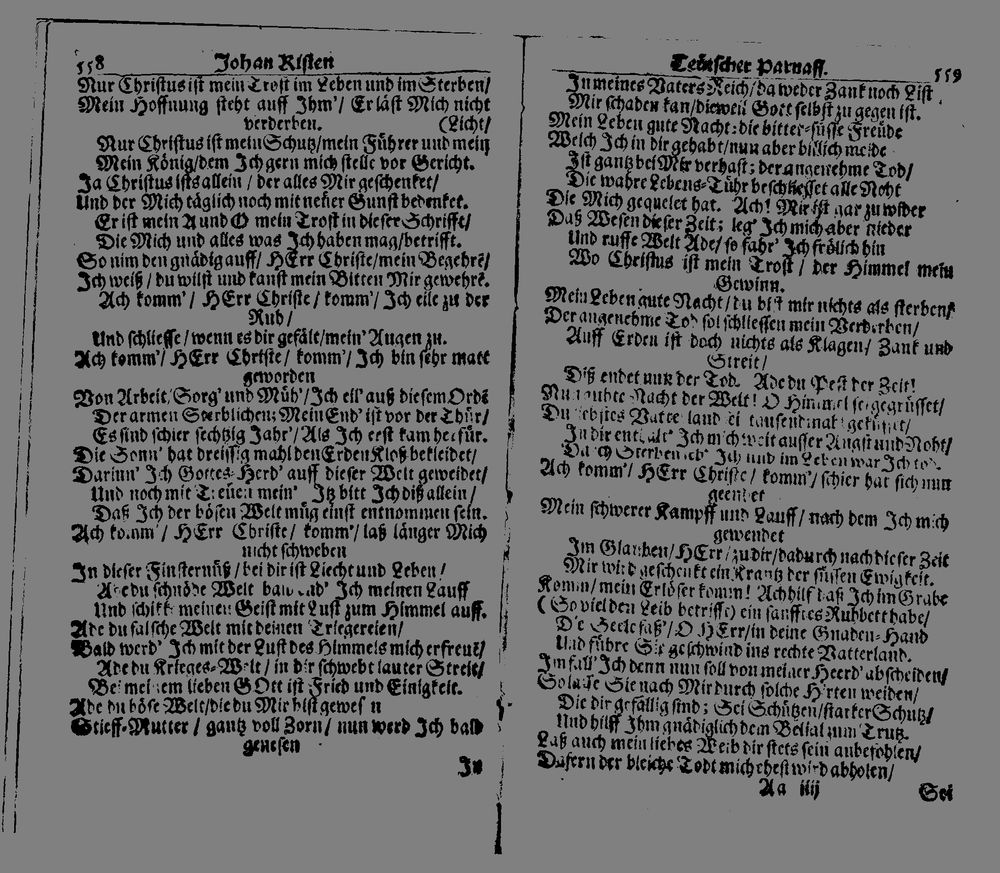 558 Johan Risten
Nur Christus ist mein Trost im Leben und im Sterben/
Mein Hoffnung steht auff Ihm'/ Er läst Mich nicht
verderben. (Licht/
Nur Christus ist mein Schutz/mein Führer und mein
Mein König/dem Ich gern mich stelle vor Gericht.
Ja Christus ists allein / der alles Mir geschenket/
Und der Mich täglich noch mit neüer Gunst bedenket.
Er ist mein A und O mein Trost in dieser Schrifft/
Die Mich und alles was Ich haben mag/betrifft.
So nim den gnädig auff/ HErr Christe/mein Begehrē/
Ich weiß / du wilst und kanst mein Bitten Mir gewehrē.
Ach komm'/ HErr Christe / komm'/ Ich eile zu der
Ruh/
Und schliesse / wenn es dir gefält/mein' Augen zu.
Ach komm'/ HErr Christe/ komm'/ Ich bin sehr matt
geworden
Von Arbeit/Sorg' und Müh'/ Ich eil' auß diesem Ordē
Der armen Sterblichen; Mein End' ist vor der Thür/
Es sind schier sechtzig Jahr'/ Als Ich erst kam herfür.
Die Sonn' hat dreissig mahl den Erden Kloß bekleidet/
Darinn' Ich Gottes Herd' auff dieser Welt geweidet/
Und noch mit Treüen mein' Itz bitt Ich diß allein /
Daß Ich der bösen Welt müg einst entnommen sein.
Ach komm'/ HErr Christe/ komm'/ laß länger Mich
nicht schweben
In dieser Finsternüß / bei dir ist Liecht und Leben/
Ade du schnöde Welt bald Ich meinen Lauff
Und schikk meinen Geist mit Lust zum Himmel auff.
Ade du falsche Welt mit deinen Triegereien/
Bald werd' Ich mit der Lust des Himmels mich erfreuē/
Ade du Krieges-Welt / in dir schwebt lauter Streit/
Bei meinem lieben GOtt ist Fried und Einigkeit.
Ade du böse Welt/die du Mir bist gewesen
Stieff-Mutter / gantz voll Zorn / nun werd Ich bald
genesen
In
Teütscher Parnaß. 559
In meines Vaters Reich/da weder Zank noch List
Mir schaden kan/dieweil Gott selbst zu gegen ist.
Mein Leben gute Nacht: die bitter-süsse Freüde
Welch Ich in dir gehabt/nun aber billich meide
Ist gantz bei Mir verhast: der angenehme Tod/
Die wahre Lebens-Tühr beschliesset alle Noht
Die Mich gequelet hat. Ach! Mir ist gar zu wider
Daß Wesen dieser Zeit; leg' Ich mich aber nieder
Und ruffe Welt Ade/ so fahr' Ich frölich hin
Wo Christus ist mein Trost / der Himmel mein
Gewinn.
Mein Leben gute Nacht/du bist mir nichts als sterben/
Der angenehme Tod sol schliessen mein Verderben/
Auff Erden ist doch nichts als Klagen/ Zank und
Streit/
Diß endet nun der Tod. Ade du Pest der Zeit!
Nacht der Welt! O Himmel sei gegrüsset/
Du liebstes Vaterland sei tausendmahl geküsset/
In dir entfält' Ich mich weit ausser Angst und Noht/
Da Ich Sterben leb' Ich und im Leben war Ich tod.
Ach komm'/ HErr Christe/ komm'/ schier hat sich nun
geendet
Mein schwerer Kampff und Lauff/ nach dem Ich mich
gewendet
Im Glauben/ HErr/ zu dir/dadurch nach dieser Zeit
Mir wird geschenkt ein Krantz der süssen Ewigkeit.
Komm/ mein Erlöser komm! Ach hilf daß Ich im Grabe
(So viel den Leib betrifft) ein sanfftes Ruhbett habe/
Die Seele faß'/O HErr/in deine Gnaden-Hand
Und führe Sie geschwind ins rechte Vatterland.
Im fall' Ich denn nun soll von meiner Heerd' abscheiden/
So lasse Sie nach Mir durch solche Hirten weiden/
Die dir gefällig sind; Sei Schützen/starker Schutz/
Und hilff Ihm gnädiglich dem Belial zum Trutz.
Laß auch mein liebes Weib dir stets sein anbefohlen/
Dafern der bleiche Todt mich ehest wird abholen/
Aa iiij Sei